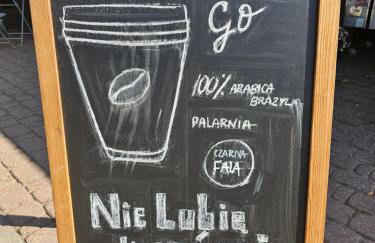 Go
100% ARABICA
BRAZYLIA
PALARNIA
CZARNA
FALA
NIE LUBIĘ